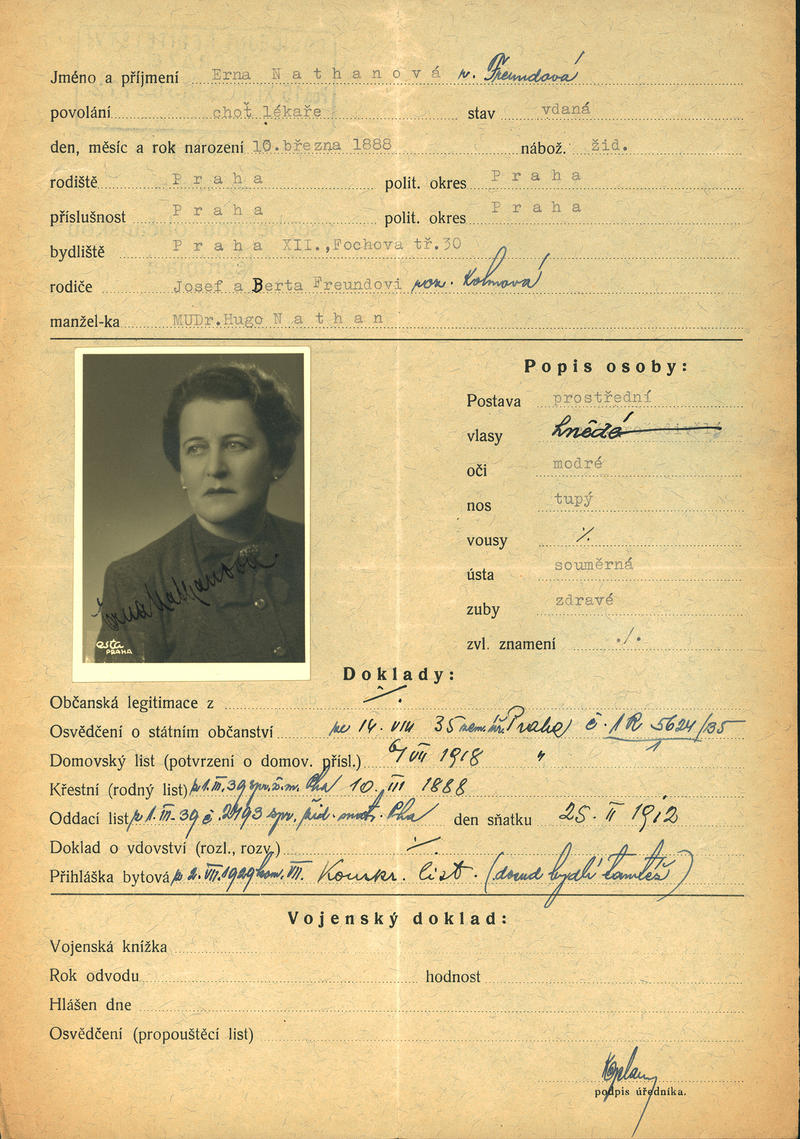 Jméno a příjmení Erna Nathanová r. Freundová
povolání choť lékaře stav vdaná
den, měsíc a rok narození 10.března 1888 nábož. žid.
rodiště Praha polit. okres Praha
příslušnost Praha polit. okres Praha
bydliště Praha XII.,Fochova tř.30
rodiče Josef a Berta Freundovi roz. Kohnová
manžel-ka MUDr.Hugo Nathan
Popis osoby:
Postava prostřední
vlasy hnědé
oči modré
nos tupý
vousy ·/.
ústa souměrná
zuby zdravé
zvl. znamení ·/·
Erna Nathanová
esta
PRAHA
Doklady:
Občanská legitimace z ·/.
Osvědčení o státním občanství ze 14. VIII 35 zem. úř. Praha č. 1R 5624/35
Domovský list (potvrzení o domov. přísl.) 6/VII 1918 "
Křestní (rodný list) z 1. III. 39 spr. ž. m. Pha 10. III 1888
Oddací list z 1. III-39 č. 2493 spr. žid. mat. Pha den sňatku 25. II 1912
Doklad o vdovství (rozl., rozv.) ·/.
Přihláška bytová z 2. VII. 1929 kom. VII. Konskr. list. (dosud bydlí tamtéž)
Vojenský doklad:
Vojenská knížka
Rok odvodu hodnost
Hlášen dne
Osvědčení (propouštěcí list)
podpis úředníka.